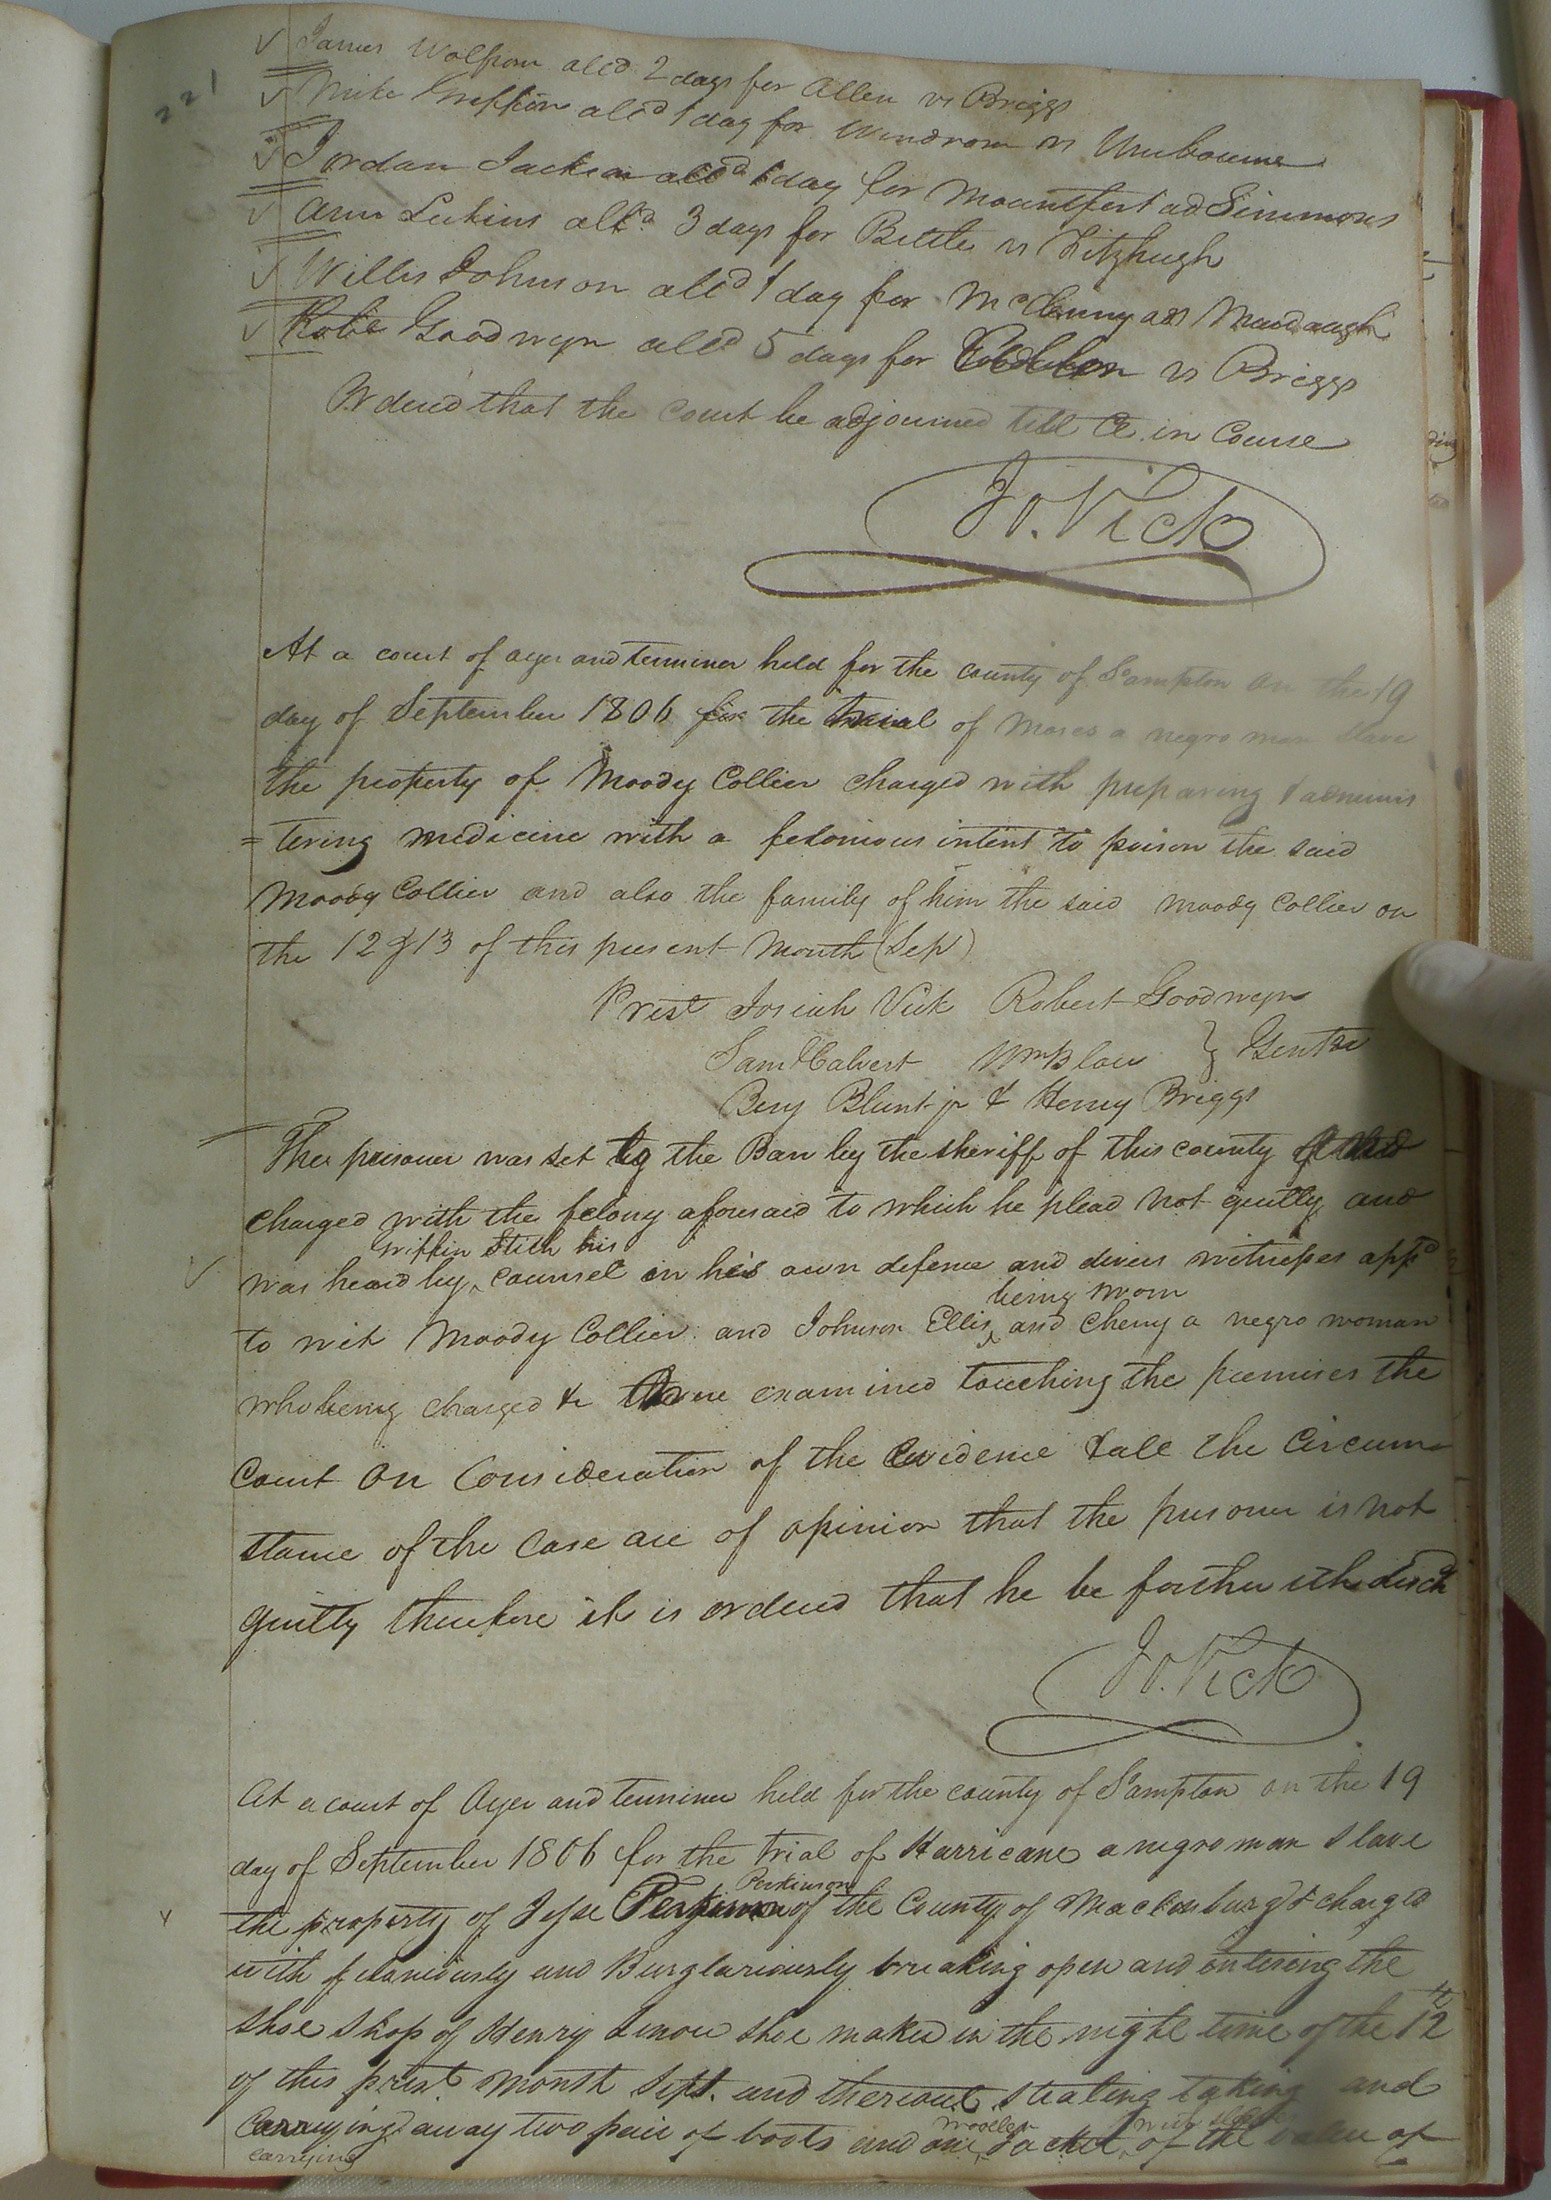 221
James Wolfrom alld 2 days for Allen vs Briggs
Mike Griffin alld 1 day for vs
Jordan Jackson alld 1 day for Mountfort ad Simmons
Ann Lukins alld 3 days for Bittle vs Fitzhugh
Willis Johnson alld 1 day for McClenny ads Murdaugh
Robt Goodwyn alld 5 days for vs Briggs
Ordered that the Court be adjourned till Ct in Course
Jo. Vick
At a court of oyer and terminer held for the county of S'ampton on the 19
day of September 1806 for the trial of Moses a negro man slave
the property of Moody Collier charged with preparing & adminis
=tering medicine with a felonious intent to poison the said
Moody Collier and also the family of him the said Moody Collier on
the 12 & 13 of this present Month (Sep)
Prest Josiah Vick Robert Goodwyn
Saml Calvert Wm Blow } Gentn
Benj Blunt jr & Henry Briggs
The prisoner was set to the Bar by the sheriff of this county
charged with the felony aforesaid to which he plead not guilty and
Griffin Stith his
was heard by ^ counsel in his own defence and divers witnesses appd
being sworn
to wit Moody Collier and Johnson Ellis ^ and Cherry a negro woman
who being charged & were examined touching the premises the
Court on Consideration of the Evidence & all the Circum
stance of the Case are of opinion that the prisoner is not
guilty therefore it is ordered that he be forthwith disch
Jo. Vick
At a court of Oyer and terminer held for the county of S'ampton on the 19
day of September 1806 for the trial of Harricane a negro man slave
Perkinson
the property of Jesse of the County of Mackenburg & charged
with feloniously and Burglariously breaking open and entering the
shoe shop of Henry shoe maker in the night time of the 12
of this prest month Sept. and thereout stealing taking and
woollen
Carrying away two pair of boots and one Jacket ^ of the value of
carrying